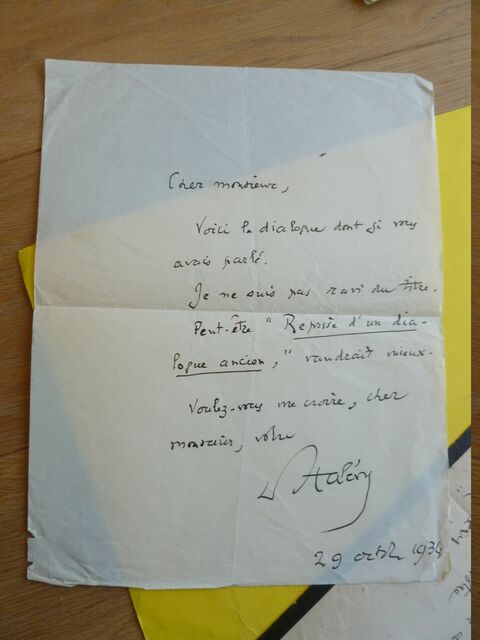 Cher monsieur,
Voici le dialogue dont je vous
avais parlé.
Je ne suis pas ravi du titre.
Peut-être "Reprise d'un dia-
logue ancien," vaudrait mieux.
Voulez-vous me croire, cher
monsieur, votre
29 octbr 1934